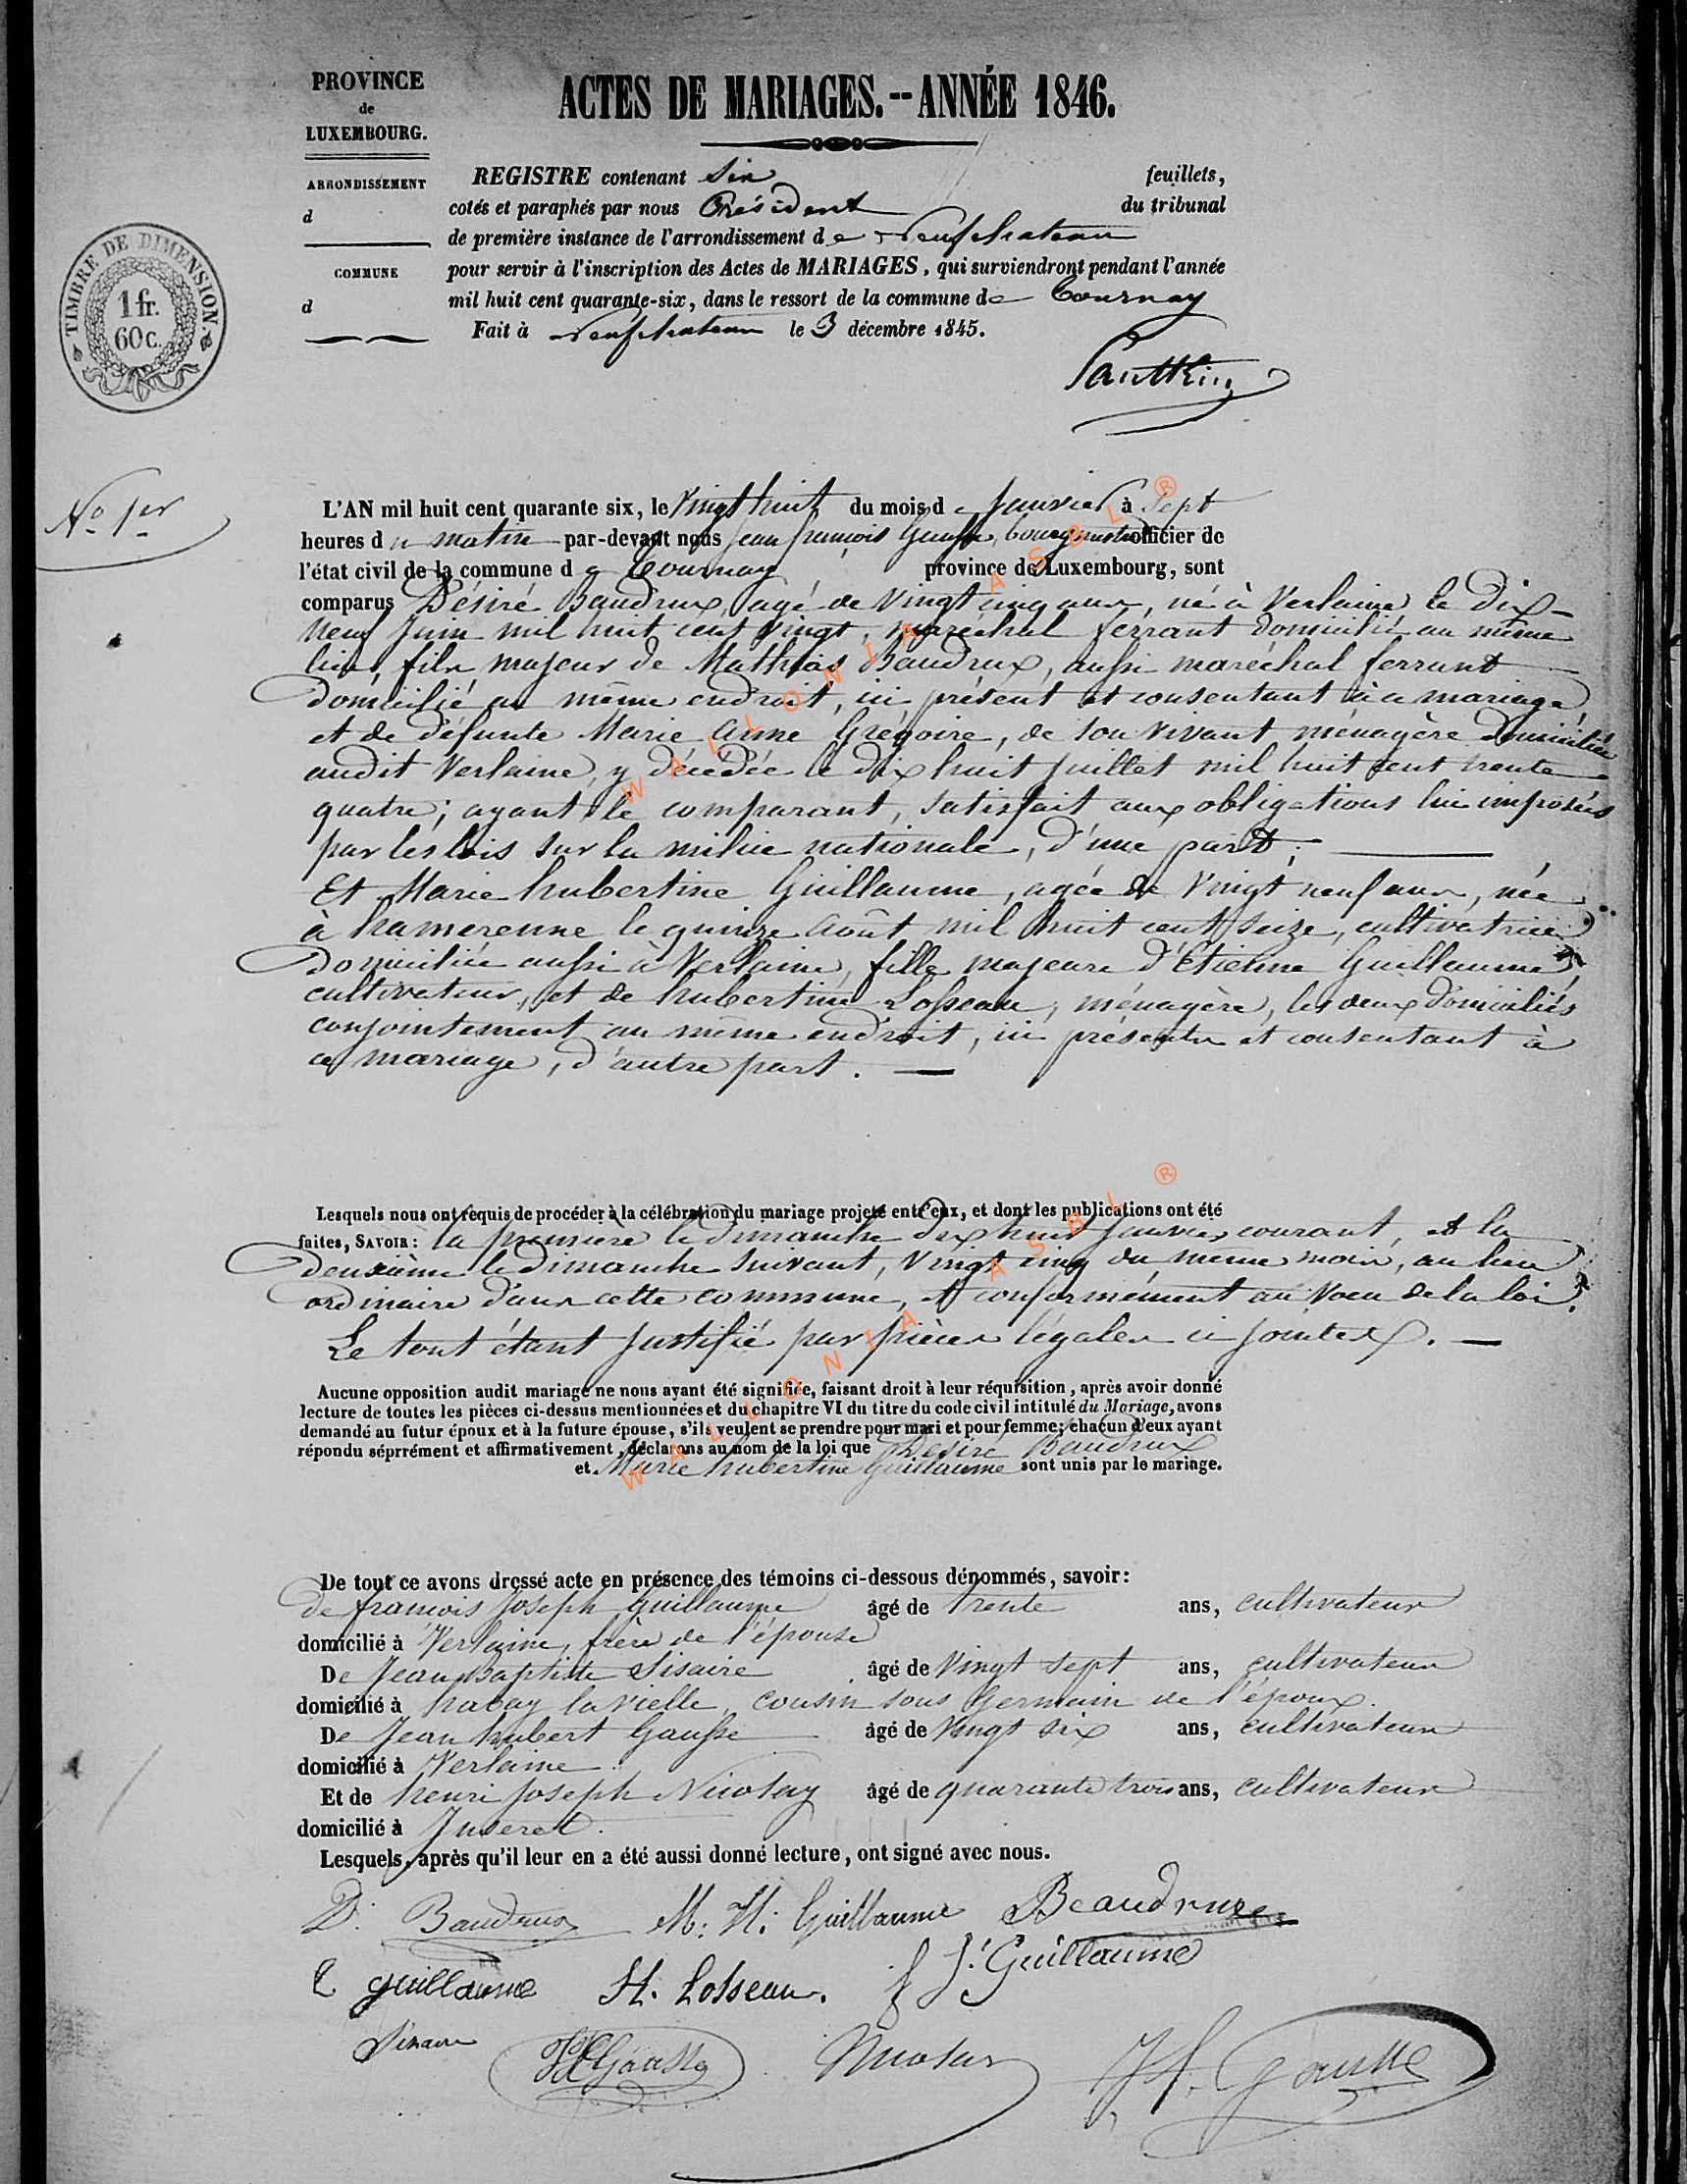 PROVINCE
de
LUXEMBOURG.
ARRONDISSEMENT
d
COMMUNE
d
TIMBRE DE DIMENSION.
1 fr.
60 c.
ACTES DE MARIAGES.--ANNÉE 1846.
REGISTRE contenant Six feuillets,
cotés et paraphés par nous Président du tribunal
de première instance de l'arrondissement de Neufchateau
pour servir à l'inscription des Actes de MARIAGES, qui surviendront pendant l'année
mil huit cent quarante-six, dans le ressort de la commune de Tournay
Fait à Neufchateau le 3 décembre 1845.
No 1er
L'AN mil huit cent quarante six, le Vingt huit du mois de Janvier à Sept
heures du matin par-devant nous Jean françois Gausse, bourgmestre officier de
l'état civil de la commune de Tournay province de Luxembourg, sont
comparus Désiré Baudrux, agé de Vingt cinq ans, né à Verlaine le Dix-
neuf Juin mil huit cent vingt, maréchal ferrant domicilié au même
lieu, fils majeur de Mathias Baudrux, aussi maréchal ferrant
domicilié au même endroit, ici présent et consentant à ce mariage,
et de défunte Marie Anne Grégoire, de son vivant ménagère domiciliée
audit Verlaine, y décédée le dix huit juillet mil huit cent trente
quatre; ayant le comparant, satisfait aux obligations lui imposées
par les lois sur la milice nationale, d'une part;
Et Marie hubertine Guillaume, agée de Vingt neuf ans, née
à hamerenne le quinze Août mil huit cent seize, cultivatrice
domiciliée aussi à Verlaine, fille majeure d'Etienne Guillaume,
cultivateur, et de hubertine Losseau, ménagère, les deux domiciliés
conjointement au même endroit, ici présents et consentant à
ce mariage, d'autre part.
Lesquels nous ont requis de procéder à la célébration du mariage projeté entr'eux, et dont les publications ont été
faites, SAVOIR: la première le dimanche dix huit Janvier courant, et la
deuxième le dimanche suivant, Vingt cinq du même mois, au lieu
ordinaire dans cette commune, et conformément au Voeu de la loi.
Le tout étant justifié par pièces légales ci jointes.
Aucune opposition audit mariage ne nous ayant été signifiée, faisant droit à leur réquisition, après avoir donné
lecture de toutes les pièces ci-dessus mentionnées et du chapitre VI du titre du code civil intitulé du Mariage, avons
demandé au futur époux et à la future épouse, s'ils veulent se prendre pour mari et pour femme; chacun d'eux ayant
répondu séprrément et affirmativement, déclarons au nom de la loi que Désiré Baudrux
et Marie hubertine Guillaume sont unis par le mariage.
De tout ce avons dressé acte en présence des témoins ci-dessous dénommés, savoir:
De françois Joseph Guillaume âgé de trente ans, cultivateur
domicilié à Verlaine, frère de l'épouse
De Jean Baptiste Sisaire âgé de Vingt sept ans, cultivateur
domicilié à habay la vielle, cousin sous Germain de l'époux.
De Jean hubert Gausse âgé de Vingt six ans, cultivateur
domicilié à Verlaine
Et de henri Joseph Nicolay âgé de quarante trois ans, cultivateur
domicilié à Juseret.
Lesquels, après qu'il leur en a été aussi donné lecture, ont signé avec nous.
D. Baudrux M: H: Guillaume Beaudrux
E guillaume H. Losseau. f J. Guillaume
Sisaire Gausse Nicolay J f. Gausse
WALLONIA ASBL ®
WALLONIA ASBL ®